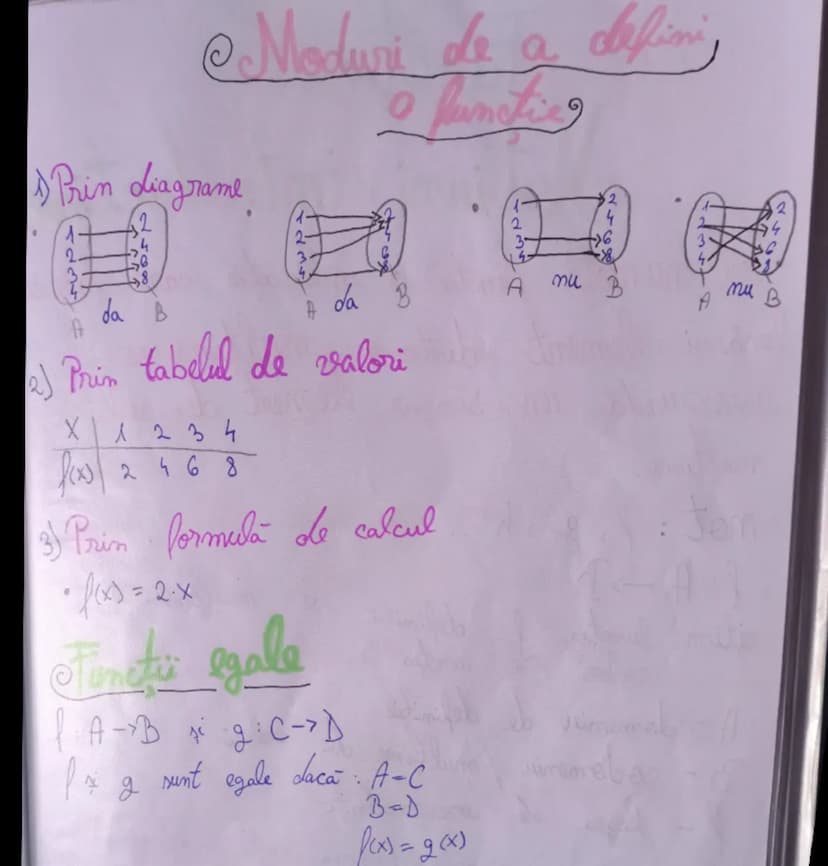 Moduri de a defini
o funcție
1) Prin diagrame
1 2 3 4 2 4 6 8 A da B
1 2 3 4 2 4 6 8 A da B
1 2 3 4 2 4 6 8 A nu B
1 2 3 4 2 4 6 8 A nu B
2) Prin tabelul de valori
x 1 2 3 4
f(x) 2 4 6 8
3) Prin formulă de calcul
• f(x) = 2·x
Funcții egale
f: A→B și g: C→D
f și g sunt egale dacă: A=C
B=D
f(x) = g(x)